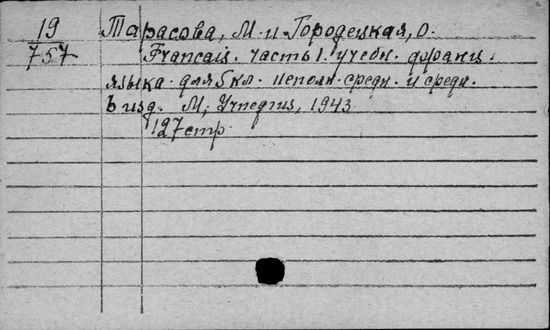 19 Тарасова, М. и Городецкая, О.
757 Francais. часть I. учебн. франц.
языка для 5 кл. неполн. средн. и средн.
6 изд. М; Учпедгиз, 1943
127 стр